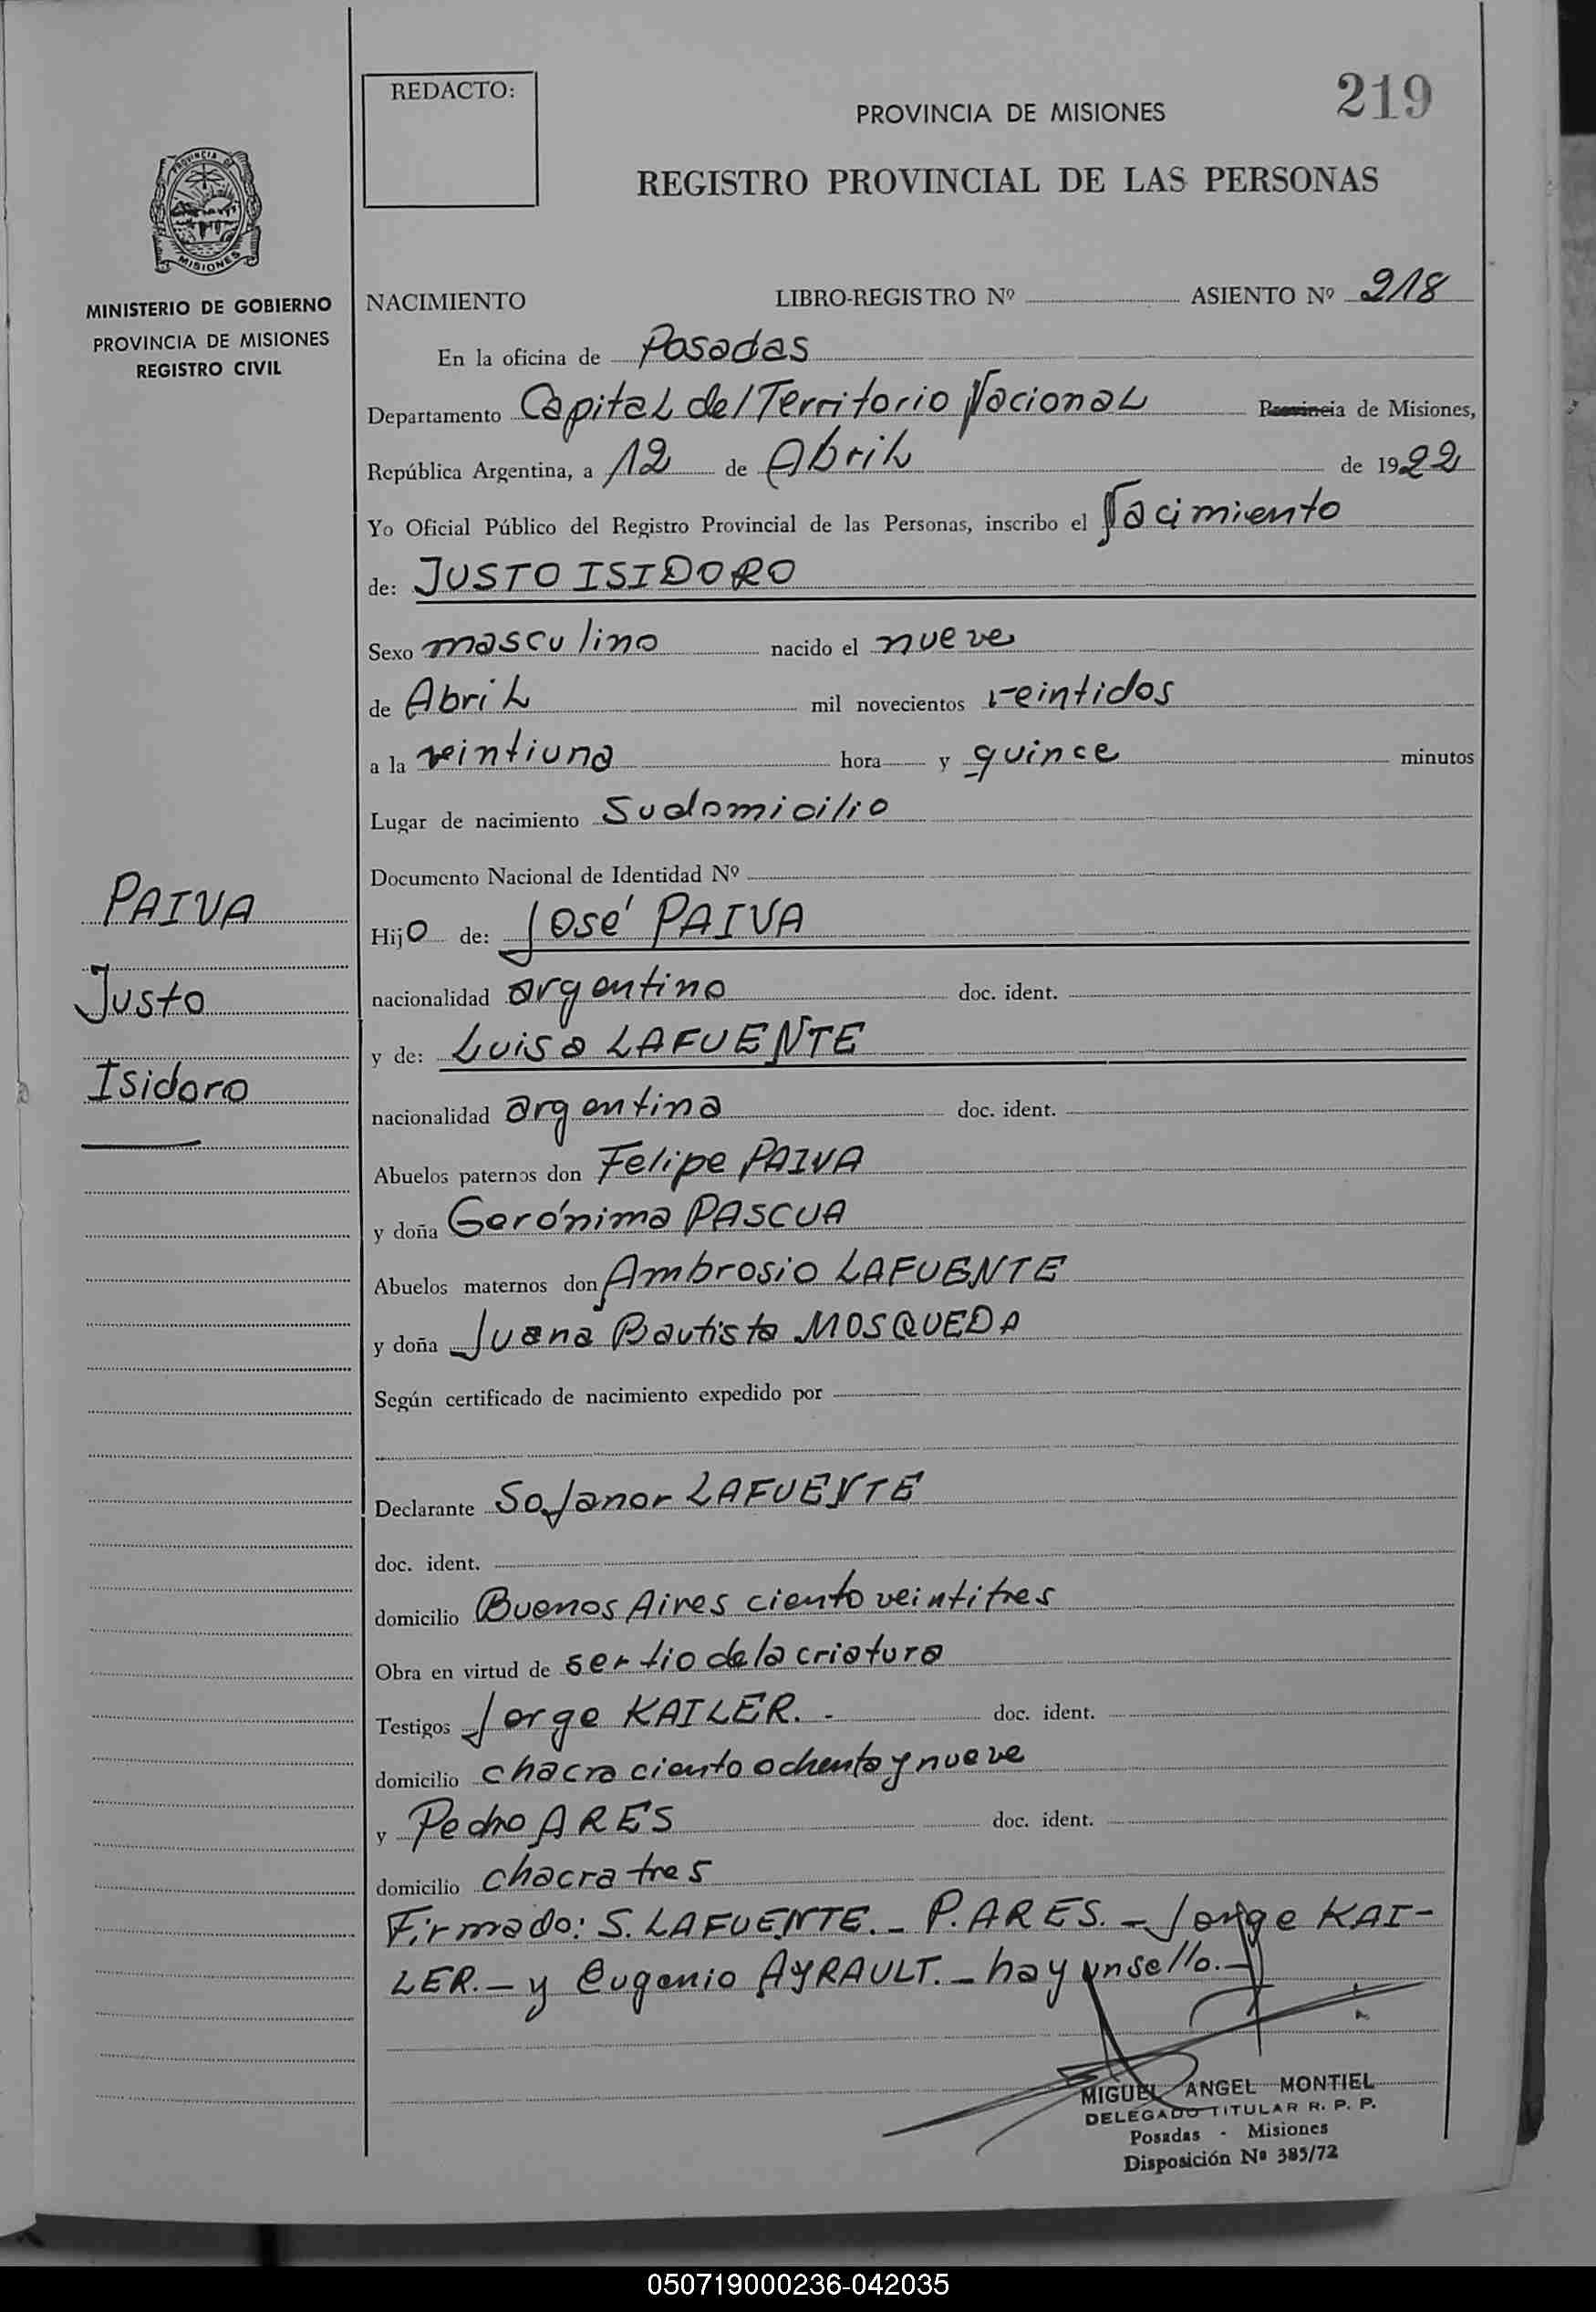 REDACTO:
PROVINCIA DE MISIONES
219
REGISTRO PROVINCIAL DE LAS PERSONAS
PROVINCIA DE
MISIONES
MINISTERIO DE GOBIERNO
PROVINCIA DE MISIONES
REGISTRO CIVIL
NACIMIENTO LIBRO-REGISTRO Nº ASIENTO Nº 218
En la oficina de Posadas
Departamento Capital del Territorio Nacional Provincia de Misiones,
República Argentina, a 12 de Abril de 1922
Yo Oficial Público del Registro Provincial de las Personas, inscribo el Nacimiento
de: JUSTO ISIDORO
Sexo masculino nacido el nueve
de Abril mil novecientos veintidos
a la veintiuna hora y quince minutos
Lugar de nacimiento Su domicilio
Documento Nacional de Identidad Nº
PAIVA
Justo
Isidoro
Hijo de: José PAIVA
nacionalidad argentino doc. ident.
y de: Luisa LAFUENTE
nacionalidad argentina doc. ident.
Abuelos paternos don Felipe PAIVA
y doña Gerónima PASCUA
Abuelos maternos don Ambrosio LAFUENTE
y doña Juana Bautista MOSQUEDA
Según certificado de nacimiento expedido por
Declarante LAFUENTE
doc. ident.
domicilio Buenos Aires ciento veintitres
Obra en virtud de ser tio de la criatura
Testigos Jorge KAILER. - doc. ident.
domicilio chacra ciento ochenta y nueve
y Pedro ARES doc. ident.
domicilio chacra tres
Firmado: S. LAFUENTE. - P. ARES. - Jorge KAI-
LER. - y Eugenio AYRAULT. - hay un sello. -
MIGUEL ANGEL MONTIEL
DELEGADO TITULAR R. P. P.
Posadas - Misiones
Disposición Nº 385/72
050719000236-042035